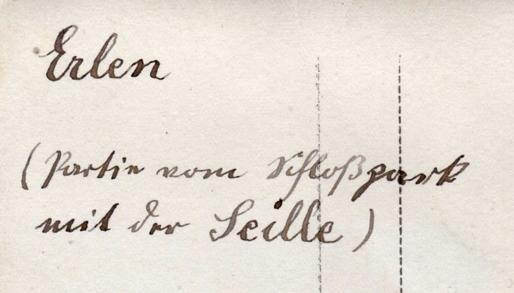 Erlen
(Partie vom Schloßpark
mit der Seille)